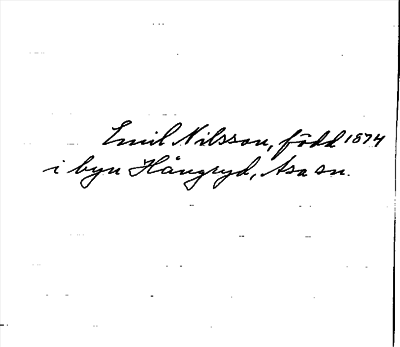 Emil Nilsson, född 1874
i byn Hångryd, Asa sn.